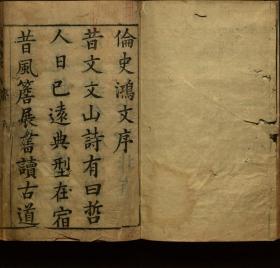 倫史鴻文序
昔文文山詩有曰哲
人日已遠典型在宿
昔風簷展書讀古道